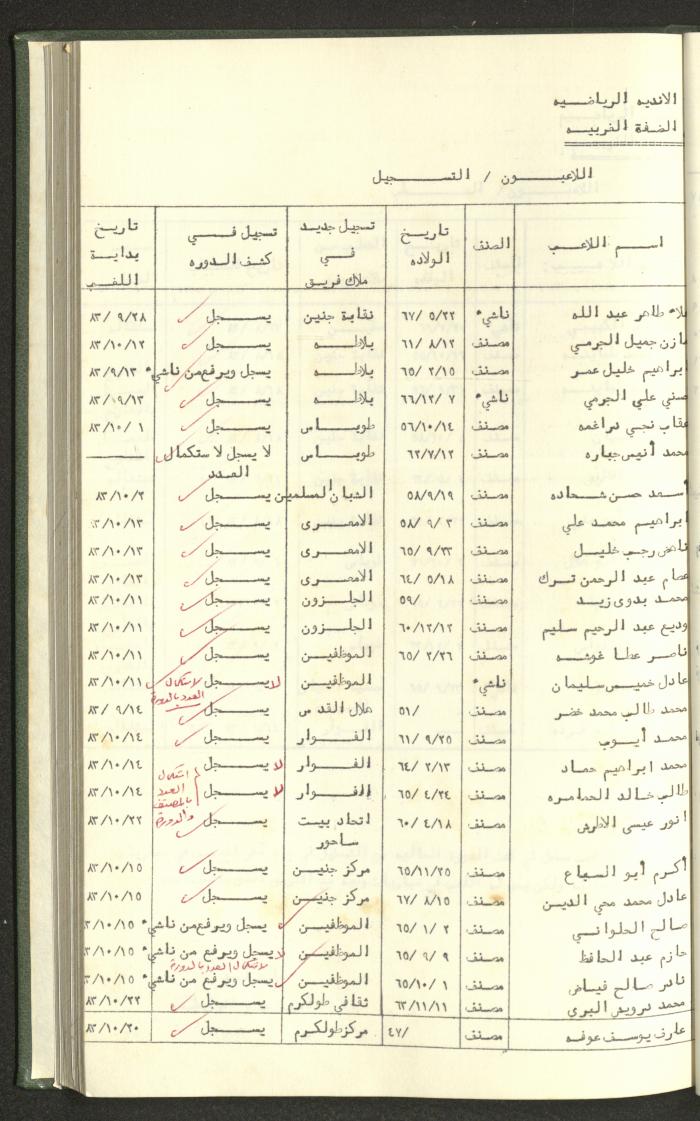 الانديه الرياضيه
الضفة الغربيه
اللاعبون / التسجيل
اسم اللاعب | الصنف | تاريخ الولاده | تسجيل جديد في ملاك فريق | تسجيل في كشف الدوره | تاريخ بداية اللعب
طاهر عبد الله | ناشيء | ٦٧/ ٥/٢٢ | نقابة جنين | يسجل | ٨٣/ ٩/٢٨
مازن جميل الجرمي | مصنف | ٦١/ ٨/١٢ | بلاطه | يسجل | ٨٣/١٠/١٢
ابراهيم خليل عمر | مصنف | ٦٥/ ٢/١٥ | بلاطه | يسجل ويرفع من ناشيء | ٨٣/٩/١٣
علي الجرمي | ناشيء | ٦٦/١٢/ ٧ | بلاطه | يسجل | ٨٣/٠٩/١٣
عقاب نجي دراغمه | مصنف | ٥٦/١٠/١٤ | طوباس | يسجل | ٨٣/١٠/ ١
محمد أنيس جباره | مصنف | ٦٢/٧/١٢ | طوباس | لا يسجل لاستكمال العدد
أسعد حسن شحاده | مصنف | ٥٨/٩/١٩ | الشبان المسلمين | يسجل | ٨٣/١٠/٢
ابراهيم محمد علي | مصنف | ٥٨/ ٩/ ٣ | الامعرى | يسجل | ٨٣/١٠/١٣
ناهض رجب خليل | مصنف | ٦٥/ ٩/٢٣ | الامعرى | يسجل | ٨٣/١٠/١٣
عصام عبد الرحمن ترك | مصنف | ٦٤/ ٥/١٨ | الامعرى | يسجل | ٨٣/١٠/١٣
محمد بدوى زيد | مصنف | ٥٩/ | الجلزون | يسجل | ٨٣/١٠/١١
وديع عبد الرحيم سليم | مصنف | ٦٠/١٢/١٢ | الجلزون | يسجل | ٨٣/١٠/١١
ناصر عطا غوشه | مصنف | ٦٥/ ٢/٢٦ | الموظفين | يسجل | ٨٣/١٠/١١
عادل خميس سليمان | ناشيء | الموظفين | لا يسجل لاستكمال العدد بالدورة | ٨٣/١٠/١١
محمد طالب محمد خضر | مصنف | ٥١/ | هلال القدس | يسجل | ٨٣/ ٩/١٤
محمد أيوب | مصنف | ٦١/ ٩/٢٥ | الفوار | يسجل | ٨٣/١٠/١٤
محمد ابراهيم حماد | مصنف | ٦٤/ ٢/١٣ | الفوار | لا يسجل | ٨٣/١٠/١٤
طالب خالد الحمامره | مصنف | ٦٥/ ٤/٢٤ | الفوار | لا يسجل | استكمال العدد بالمصنف والدورة | ٨٣/١٠/١٤
انور عيسى الاطرش | مصنف | ٦٠/ ٤/١٨ | اتحاد بيت ساحور | يسجل | ٨٣/١٠/٢٢
أكرم أبو السباع | مصنف | ٦٥/١١/٢٥ | مركز جنين | يسجل | ٨٣/١٠/١٥
عادل محمد محي الدين | مصنف | ٦٧/ ٨/١٥ | مركز جنين | يسجل | ٨٣/١٠/١٥
صالح الحلواني | مصنف | ٦٥/ ١/ ٢ | الموظفين | يسجل ويرفع من ناشيء | ٣/١٠/١٥
حازم عبد الحافظ | مصنف | ٦٥/ ٩/ ٩ | الموظفين | لا يسجل ويرفع من ناشيء | لاستكمال العدد بالدورة | ٣/١٠/١٥
نادر صالح فياض | مصنف | ٦٥/١٠/ ١ | الموظفين | يسجل ويرفع من ناشيء | ٣/١٠/١٥
محمد درويش البرى | مصنف | ٦٣/١١/١١ | ثقافي طولكرم | يسجل | ٨٣/١٠/٢٢
عارف يوسف عوفه | مصنف | ٤٧/ | مركز طولكرم | يسجل | ٨٣/١٠/٢٠